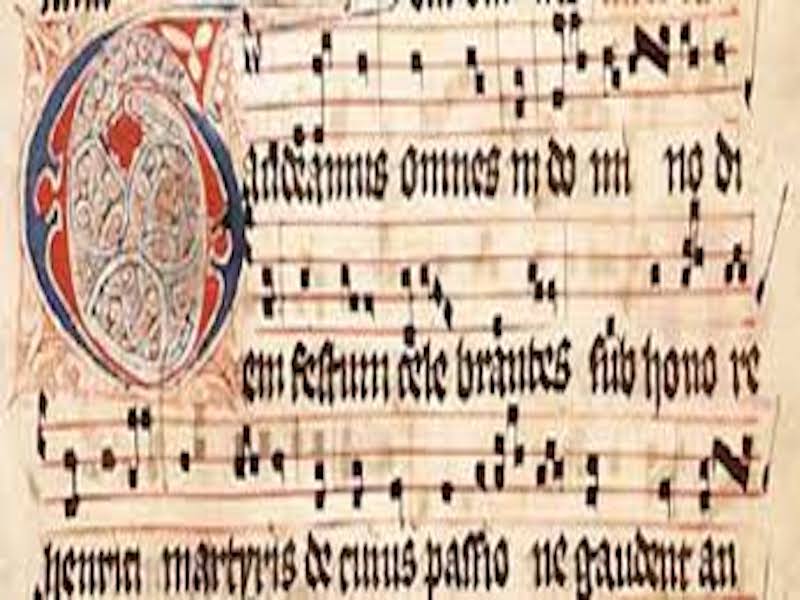 Gaudeamus omnes in do mi no di
em festum cele brantes sub hono re
henrici martyris de cuius passio ne gaudent an